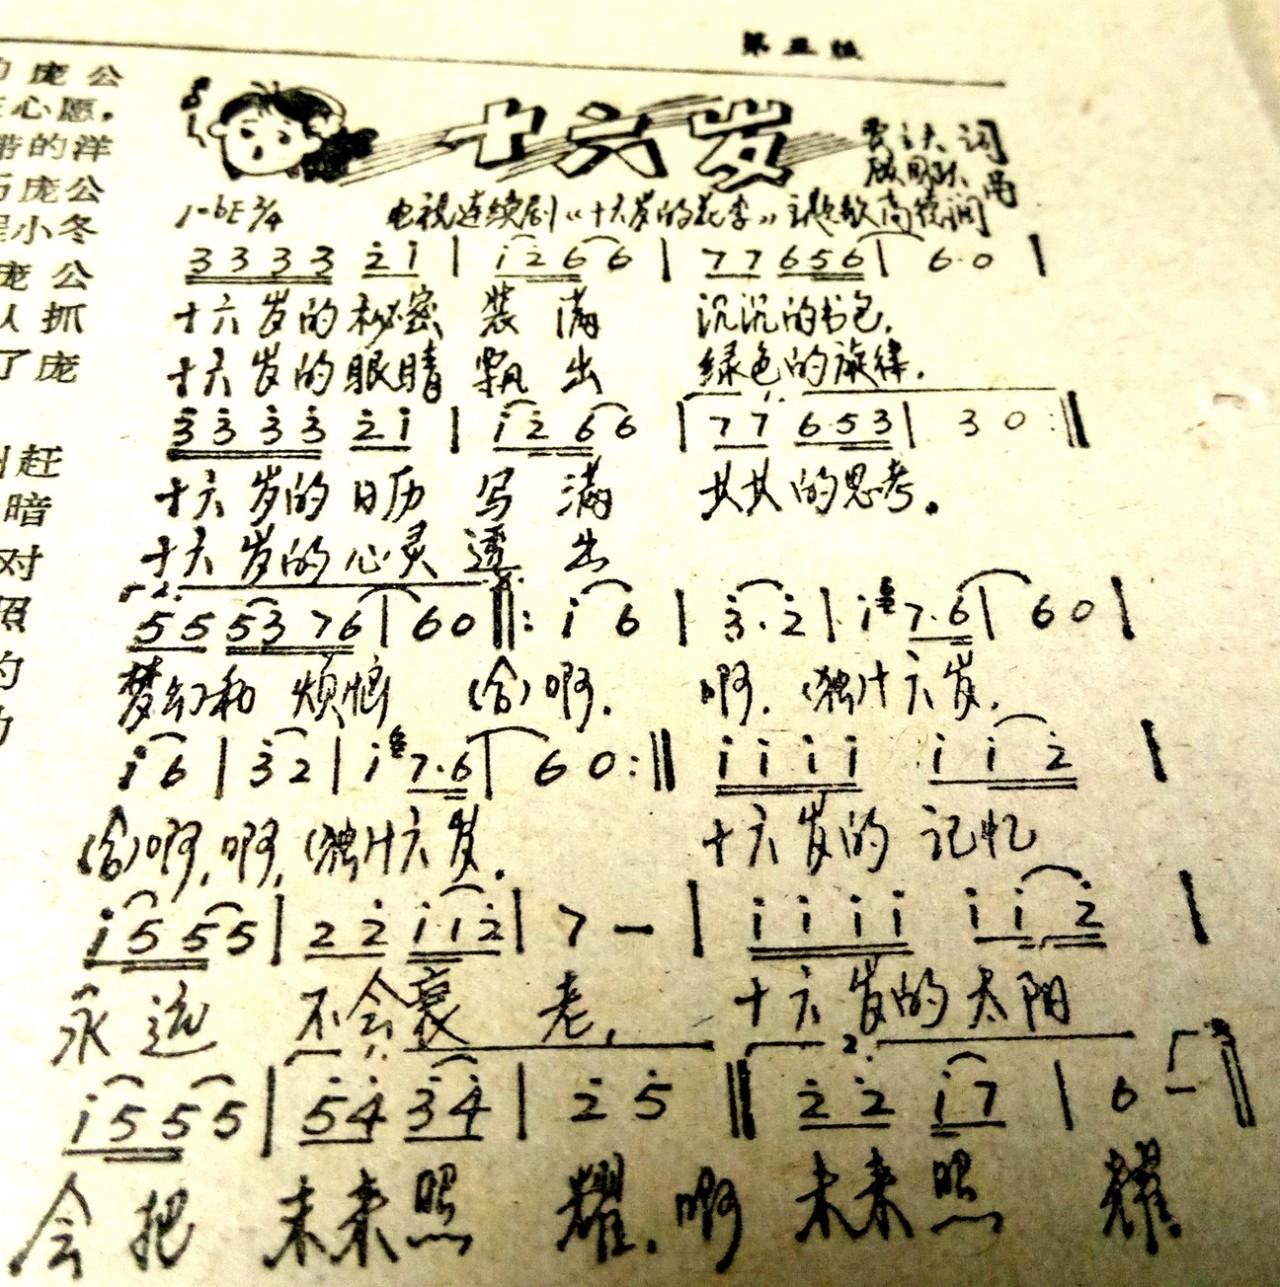 第五版
的庞公
心愿。
带的洋
庞公
小冬
庞公
人抓
了庞
赶
暗
对
十六岁
词
1=bE 2/4 电视连续剧《十六岁的花季》主题歌 高德润
3 3 3 3 2̇ 1̇ | 1̇ 2̇ 6 6 | 7 7 6 5 6 | 6·0 |
十六岁的秘密 装满 沉沉的书包,
十六岁的眼睛 飘出 绿色的旋律.
3̇ 3̇ 3̇ 3̇ 2̇ 1̇ | 1̇ 2̇ 6 6 | 1. 7 7 6·5 3 | 3 0 :‖
十六岁的日历 写满 共共的思考。
十六岁的心灵 透出
2. 5 5 5 3 7 6 | 6 0 ‖: 1̇ 6 | 3̇· 2̇ | 1̇ 7·6 | 6 0 |
梦幻和烦恼 (合)啊. 啊. (独)十六岁.
1̇ 6 | 3̇ 2 | 1̇ 7·6 | 6 0 :‖ 1̇ 1̇ 1̇ 1̇ 1̇ 1̇ 2̇ |
(合)啊,啊,(独)十六岁. 十六岁的 记忆
1̇ 5 5 5 | 2 2̇ 1̇ 1̇ 2̇ | 7 – | 1̇ 1̇ 1̇ 1̇ 1̇ 1̇ 2̇ |
永远 不会衰老, 十六岁的太阳
1̇ 5 5 5 | 1. 5̇ 4̇ 3̇ 4̇ | 2̇ 5̇ ‖ 2. 2̇ 2̇ 1̇ 7 | 6 – ‖
会把 未来照耀.啊 未来照耀.